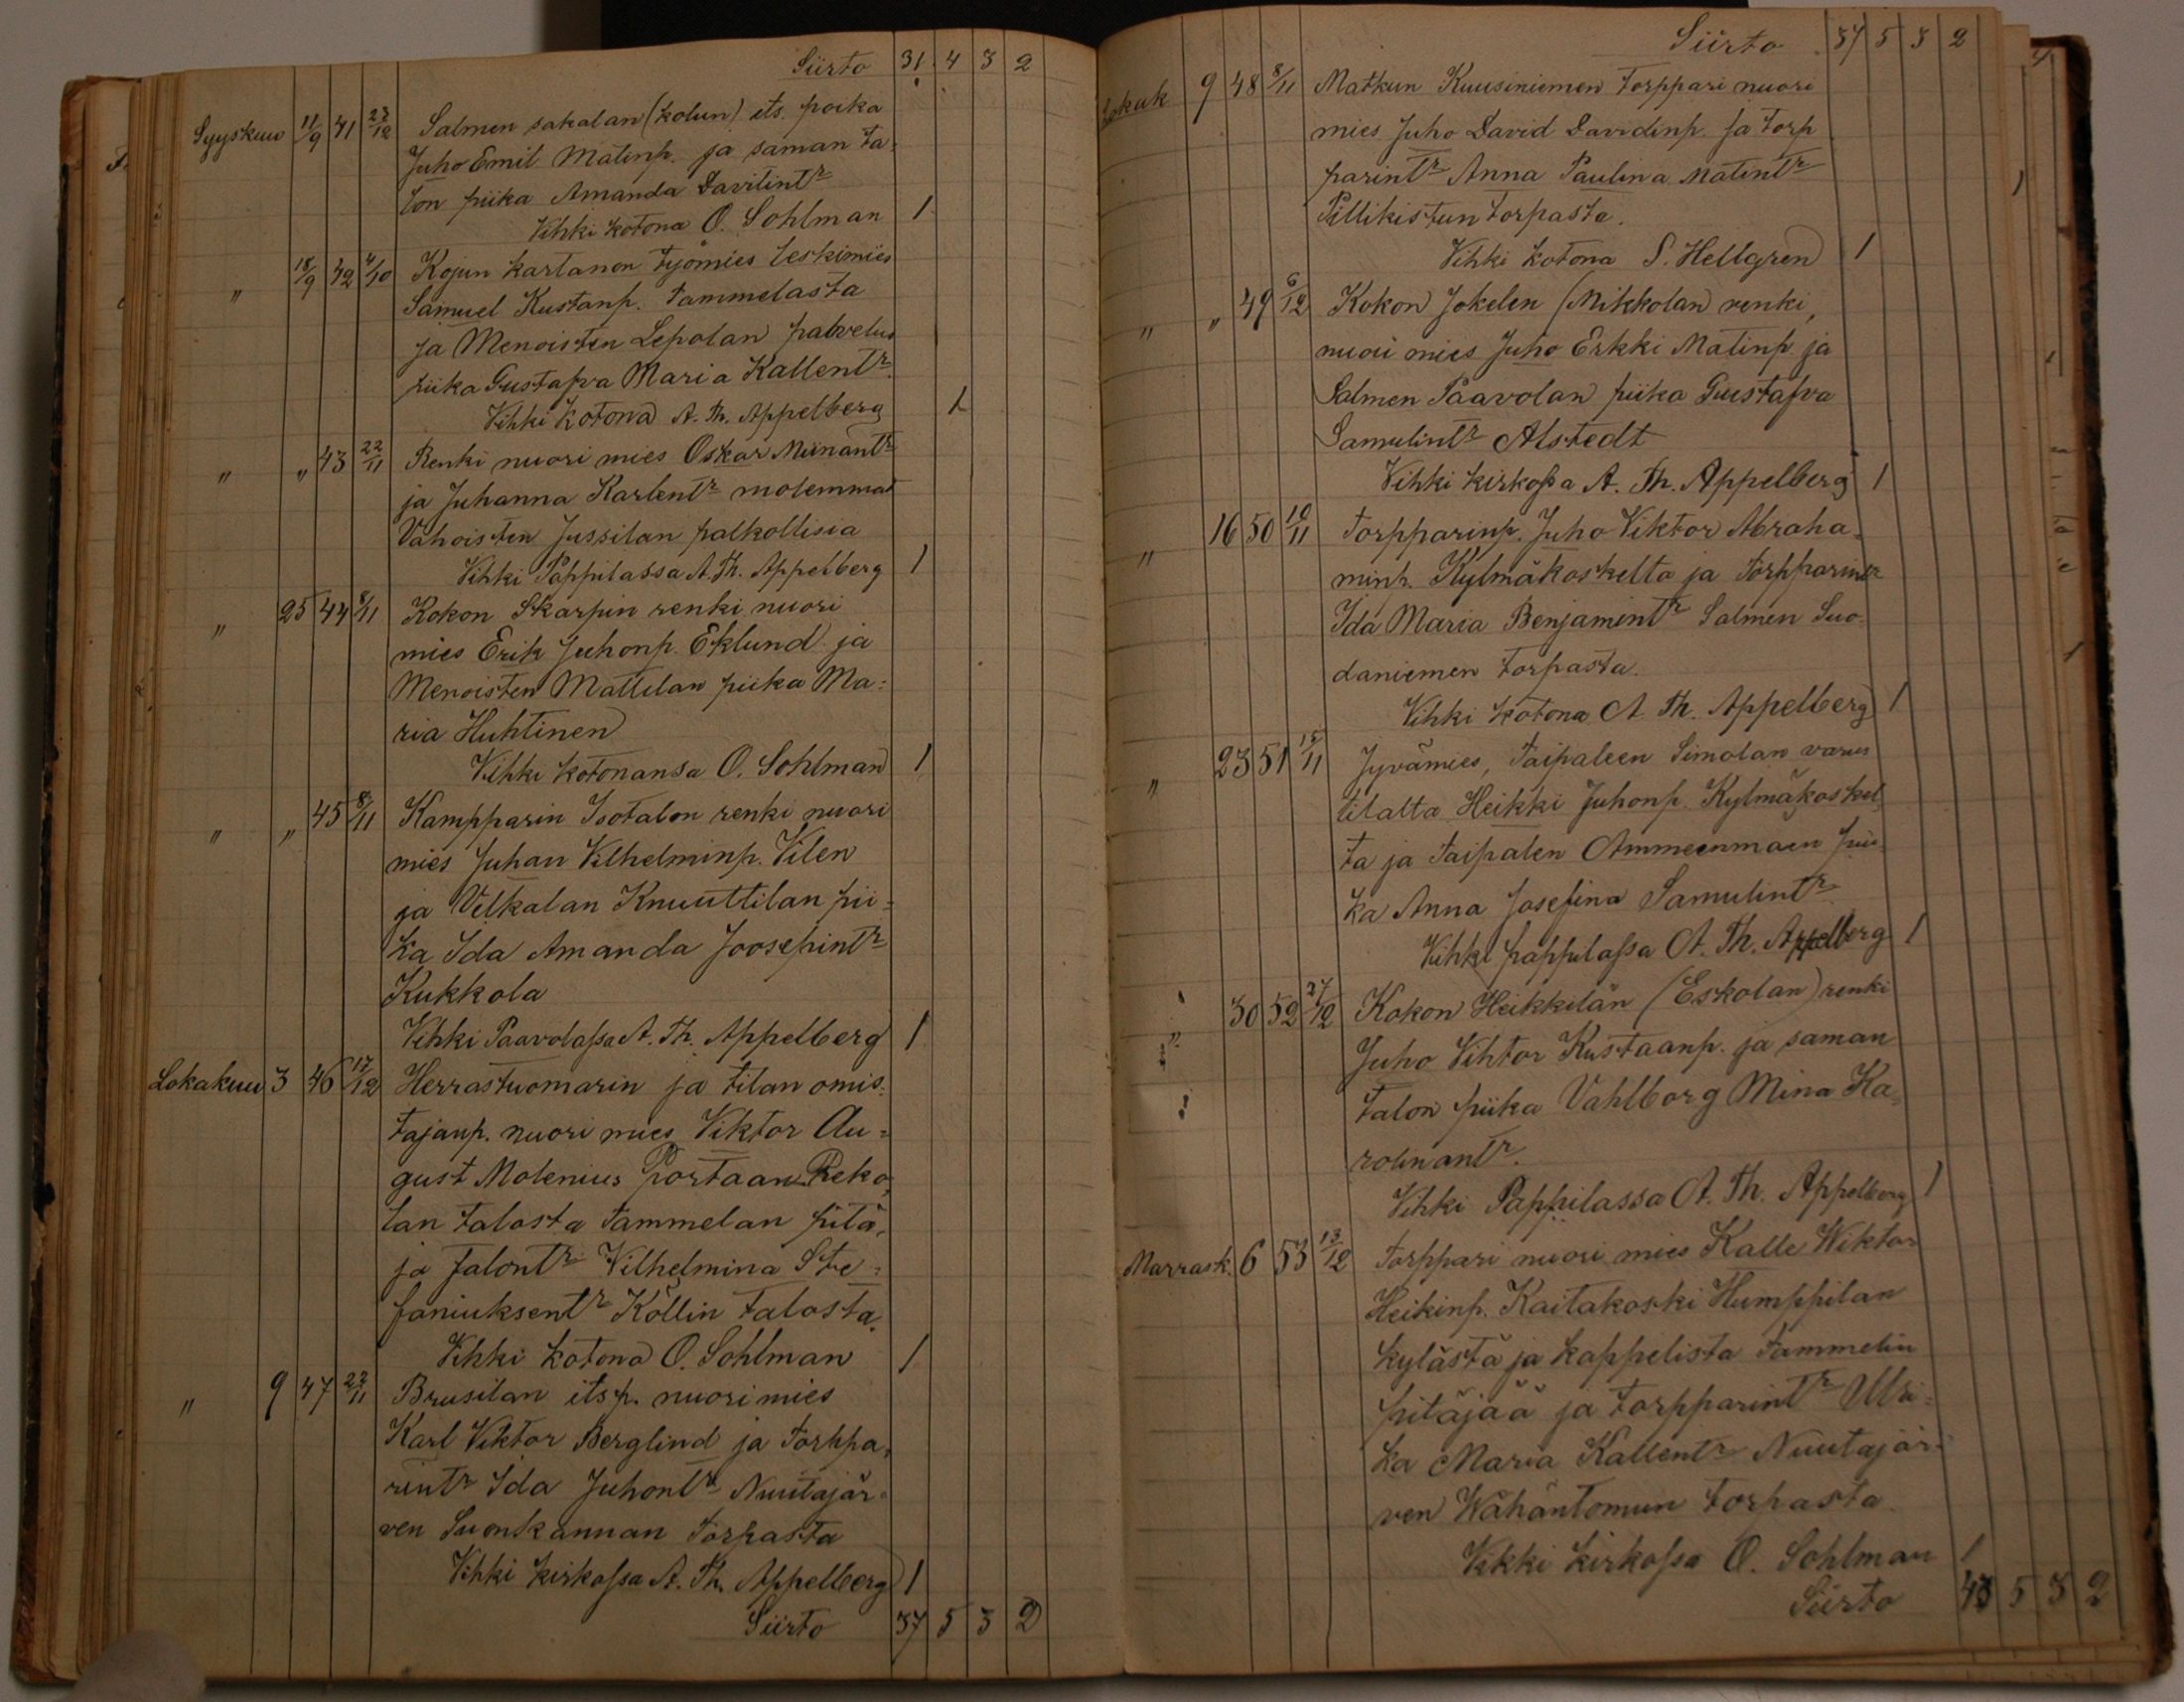 Siirto 31 4 3 2
Syyskuu 11/9 41 23/12 Salmen sakalan (kolun) its. poika
Juho Emil Matinp. ja saman ta-
lon piika Amanda Davilintr
Vihki kotona O. Sohlman 1
" 18/9 42 4/10 Kojun kartanon työmies leskimies
Samuel Kustanp. Tammelasta
ja Menoisten Lepolan palvelus
piika Gustafva Maria Kallentr.
Vihki kotona A. Th. Appelberg 1
" " 43 22/11 Renki nuori mies Oskar Miinantr
ja Juhanna Karlentr molemmat
Vahoisten Jussilan palkollisia
Vihki Pappilassa A. Th. Appelberg 1
" 25 44 8/11 Kokon Skarpin renki nuori
mies Erik Juhonp. Eklund ja
Menoisten Mattilan piika Ma=
ria Huhtinen
Vihki kotonansa O. Sohlman 1
" " 45 8/11 Kampparin Isotalon renki nuori
mies Juhan Vilhelminp. Vilen
ja Velkalan Knuuttilan pii=
ka Ida Amanda Joosepintr
Kukkola
Vihki Paavolaßa A. Th. Appelberg 1
Lokakuu 3 46 17/12 Herrastuomarin ja tilan omis-
tajanp. nuori mies Viktor Au=
gust Molenius Portaan Reko-
lan talosta Tammelan pitä,
ja Talontr Vilhelmina Ste=
faniuksentr Köllin talosta.
Vihki kotona O. Sohlman 1
" 9 47 22/11 Brusilan itsp. nuori mies
Karl Viktor Berglind ja torppa,
rintr Ida Juhontr Nuutajär=
ven Suonkannan torpasta
Vihki kirkoßa A. Th. Appelberg 1
Siirto 37 5 3 2
Siirto 37 5 3 2
Lokak 9 48 8/11 Matkun Kuusiniemen torppari nuori
mies Juho David Davidinp. ja torp
parintr Anna Paulina Matintr
Pillikistun torpasta.
Vihki kotona S. Hellgren 1
" " 49 6/12 Kokon Jokelen (Mikkolan) renki,
nuori mies Juho Erkki Matinp. ja
Salmen Paavolan piika Gustafva
Samulintr Alstedt
Vihki kirkoßa A. Th. Appelberg 1
" 16 50 10/11 Torpparinp. Juho Viktor Abraha-
minp. Kylmäkoskelta ja torpparintr
Ida Maria Benjamintr Salmen Suo-
daniemen torpasta.
Vihki kotona A. Th. Appelberg 1
" 23 51 15/11 Jyvämies, Taipaleen Simolan varus
tilalta Heikki Juhonp. Kylmäkoskel,
ta ja Taipalen Ammeenmaen pii-
ka Anna Josefina Samulintr
Vihki pappilaßa A. Th. Appelberg 1
" 30 52 27/12 Kokon Heikkilän (Eskolan) renki
Juho Vihtor Kustaanp. ja saman
talon piika Vahlborg Mina Ka-
rolinantr.
Vihki Pappilassa A. Th. Appelberg 1
Marrask. 6 53 13/12 Torppari nuori mies Kalle Wiktor
Heikinp. Kaitakoski Humppilan
kylästä ja kappelista Tammelin
pitäjää ja torpparintr Ulri-
ka Maria Kallentr Nuutajär-
ven Wähäntomun torpasta.
Vihki kirkoßa O. Sohlman 1
Siirto 43 5 3 2